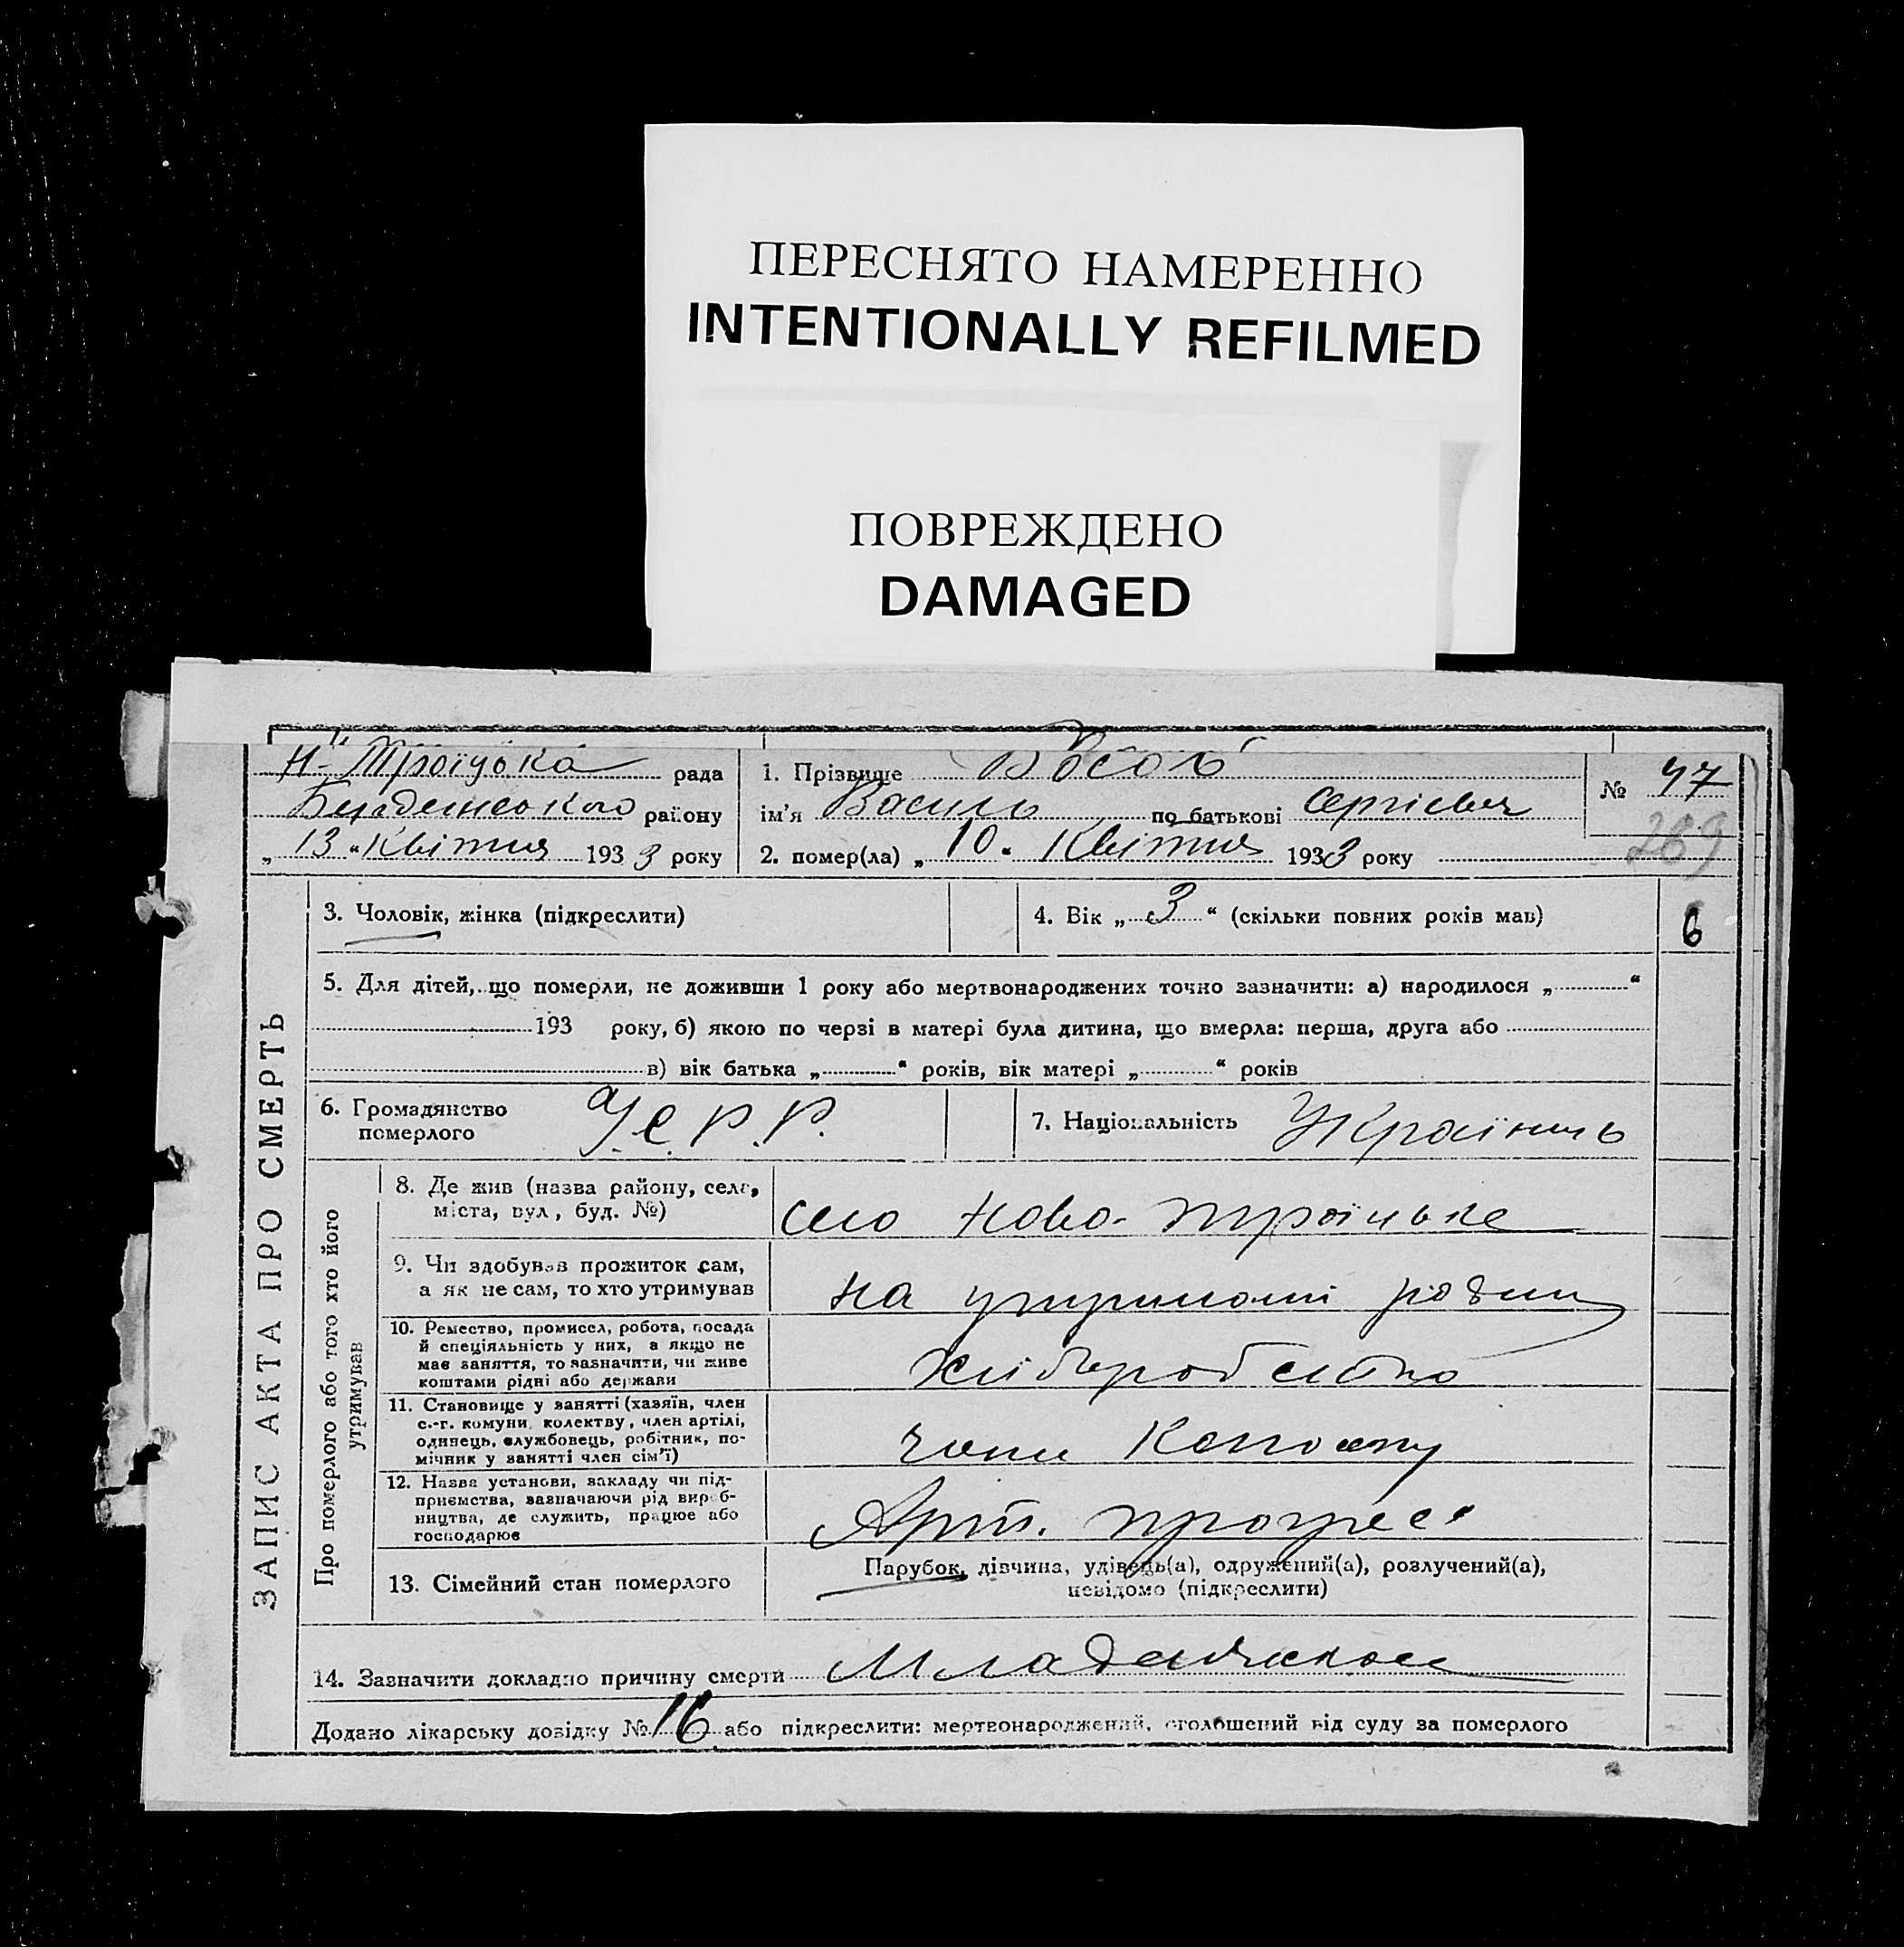 ПЕРЕСНЯТО НАМЕРЕННО
INTENTIONALLY REFILMED
ПОВРЕЖДЕНО
DAMAGED
Н-Троїцька рада
району
„ 13 “ Квітня 1933 року
1. Прізвище
ім'я Василь по батькові Сергієвич
2. помер(ла) „ 10 “ Квітня 1933 року
№ 47
289
ЗАПИС АКТА ПРО СМЕРТЬ
3. Чоловік, жінка (підкреслити)
4. Вік „ 3 “ (скільки повних років мав)
6
5. Для дітей, що померли, не доживши 1 року або мертвонароджених точно зазначити: а) народилося „ “
193 року, б) якою по черзі в матері була дитина, що вмерла: перша, друга або
в) вік батька „ “ років, вік матері „ “ років
6. Громадянство
померлого
У.С.Р.Р.
7. Національність Українець
Про померлого або того хто його
утримував
8. Де жив (назва району, села,
міста, вул., буд. №)
село Ново-Троїцьке
9. Чи здобував прожиток сам,
а як не сам, то хто утримував
на утриманні родини
10. Ремество, промисел, робота, посада
й спеціяльність у них, а якщо не
має заняття, то зазначити, чи живе
коштами рідні або держави
хліборобство
11. Становище у занятті (хазяїн, член
с.-г. комуни, колектву, член артілі,
одинець, службовець, робітник, по-
мічник у занятті член сім'ї)
член Колгоспу
12. Назва установи, закладу чи під-
приємства, зазначаючи рід вироб-
ництва, де служить, працює або
господарює
Арт. прогрес
13. Сімейний стан померлого
Парубок, дівчина, удівець(а), одружений(а), розлучений(а),
невідомо (підкреслити)
14. Зазначити докладно причину смерти
Додано лікарську довідку № 16 або підкреслити: мертвонароджений, оголошений від суду за померлого